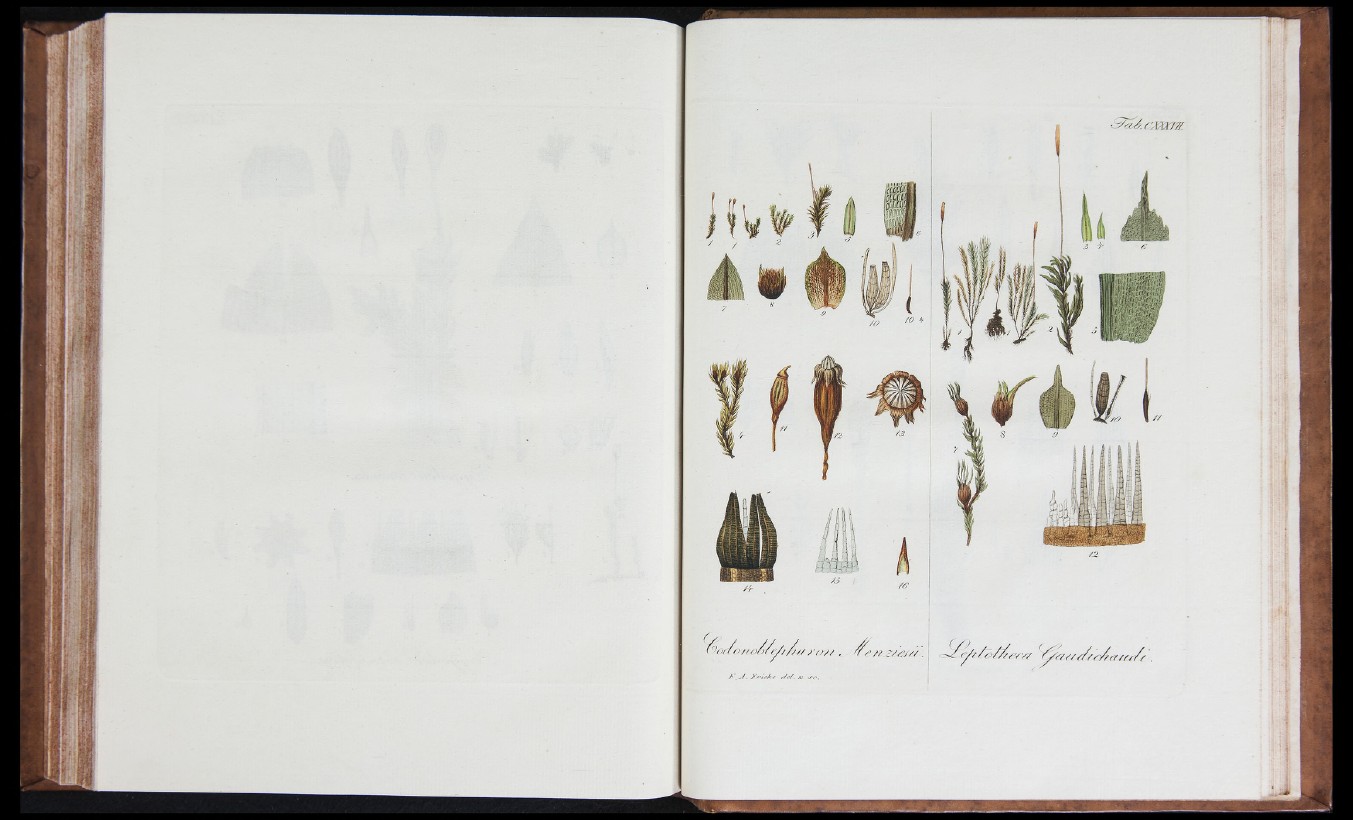 Tab. CXXXVII.
1 1 2 3 5 6
7 8 9 10 10 4
4 11 12 13
14 15 16
1 2 3 4 6
5
7 8 9 10 11
12
Codonoblepharon Menziesii. Leptotheca Gaudichaudi.
del. & sc.